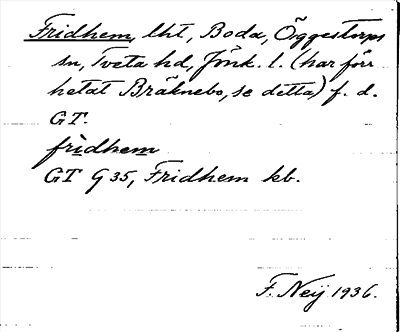 Fridhem, lht, Boda, Öggestorps
sn, Tveta hd, Jönk. l. (har förr
hetat Bräknebo, se detta) f. d.
GT.
fridhem
GT G 35, Fridhem kb.
F. Neij 1936.